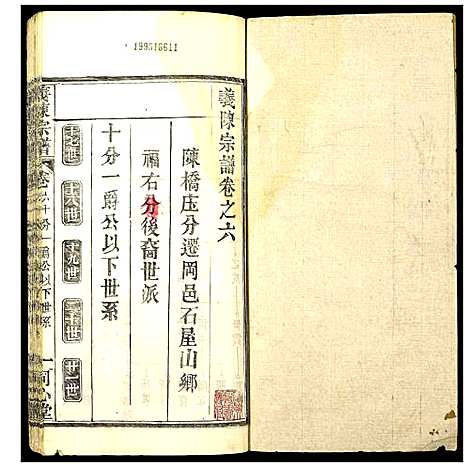 199515611
義陳宗譜卷之六
陳橋庄分遷岡邑石屋山鄉
福右分後裔世派
十分一爵公以下世系
十七世
十八世
十九世
二十世
廿一世
義陳宗譜
卷之六十分一爵公以下世系